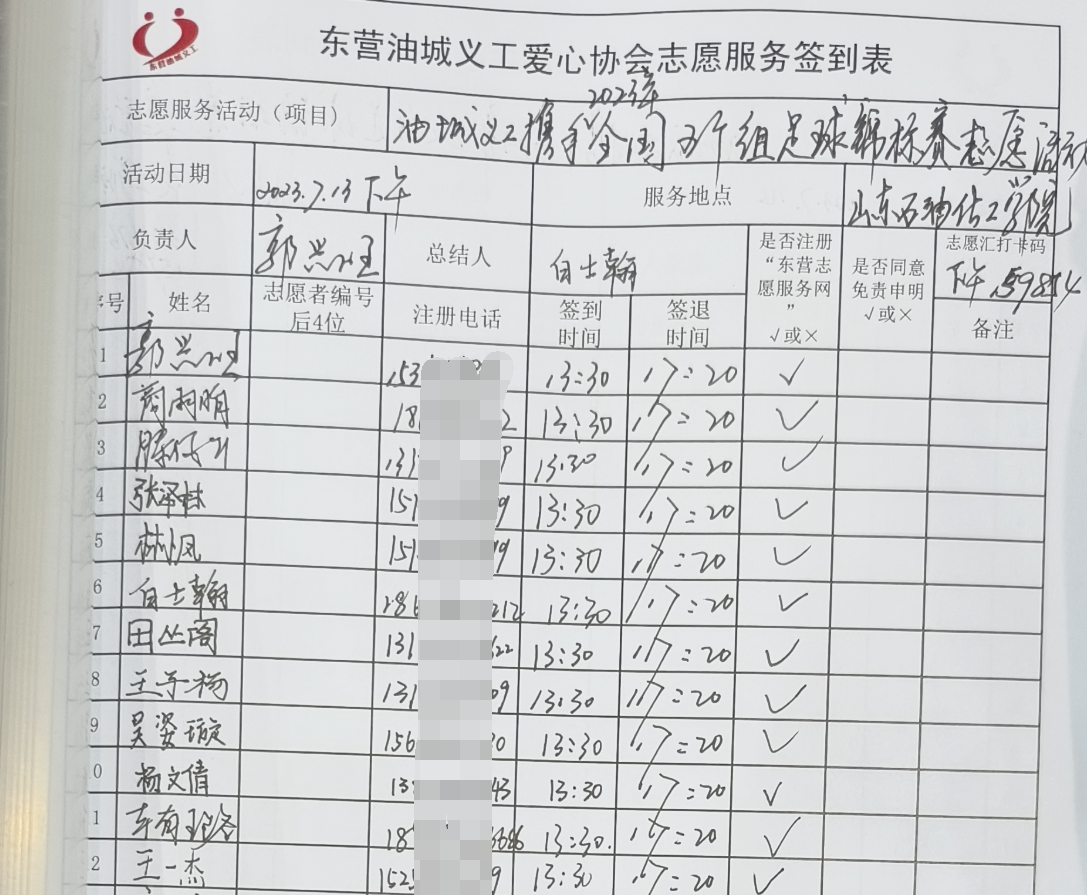 东营油城义工
东营油城义工爱心协会志愿服务签到表
志愿服务活动（项目）
2023年
油城义工携手全国 组足球锦标赛志愿活动
活动日期 2023.7.13下午 服务地点 山东石油化工学院
负责人 郭 总结人 白士翰 是否注册“东营志愿服务网” √或× 是否同意免责申明 √或× 志愿汇打卡码 下午
序号 姓名 志愿者编号后4位 注册电话 签到时间 签退时间 备注
1 郭 153 13:30 17:20 √
2 18 2 13:30 17:20 √
3 131 9 13:30 17:20 √
4 张泽林 151 9 13:30 17:20 √
5 林风 151 9 13:30 17:20 √
6 白士翰 286 212 13:30 17:20 √
7 田丛阁 131 622 13:30 17:20 √
8 王予杨 131 09 13:30 17:20 √
9 吴 璇 156 0 13:30 17:20 √
0 杨文倩 13 43 13:30 17:20 √
1 18 686 13:30. 17:20 √
2 王一杰 152 9 13:30 17:20 √